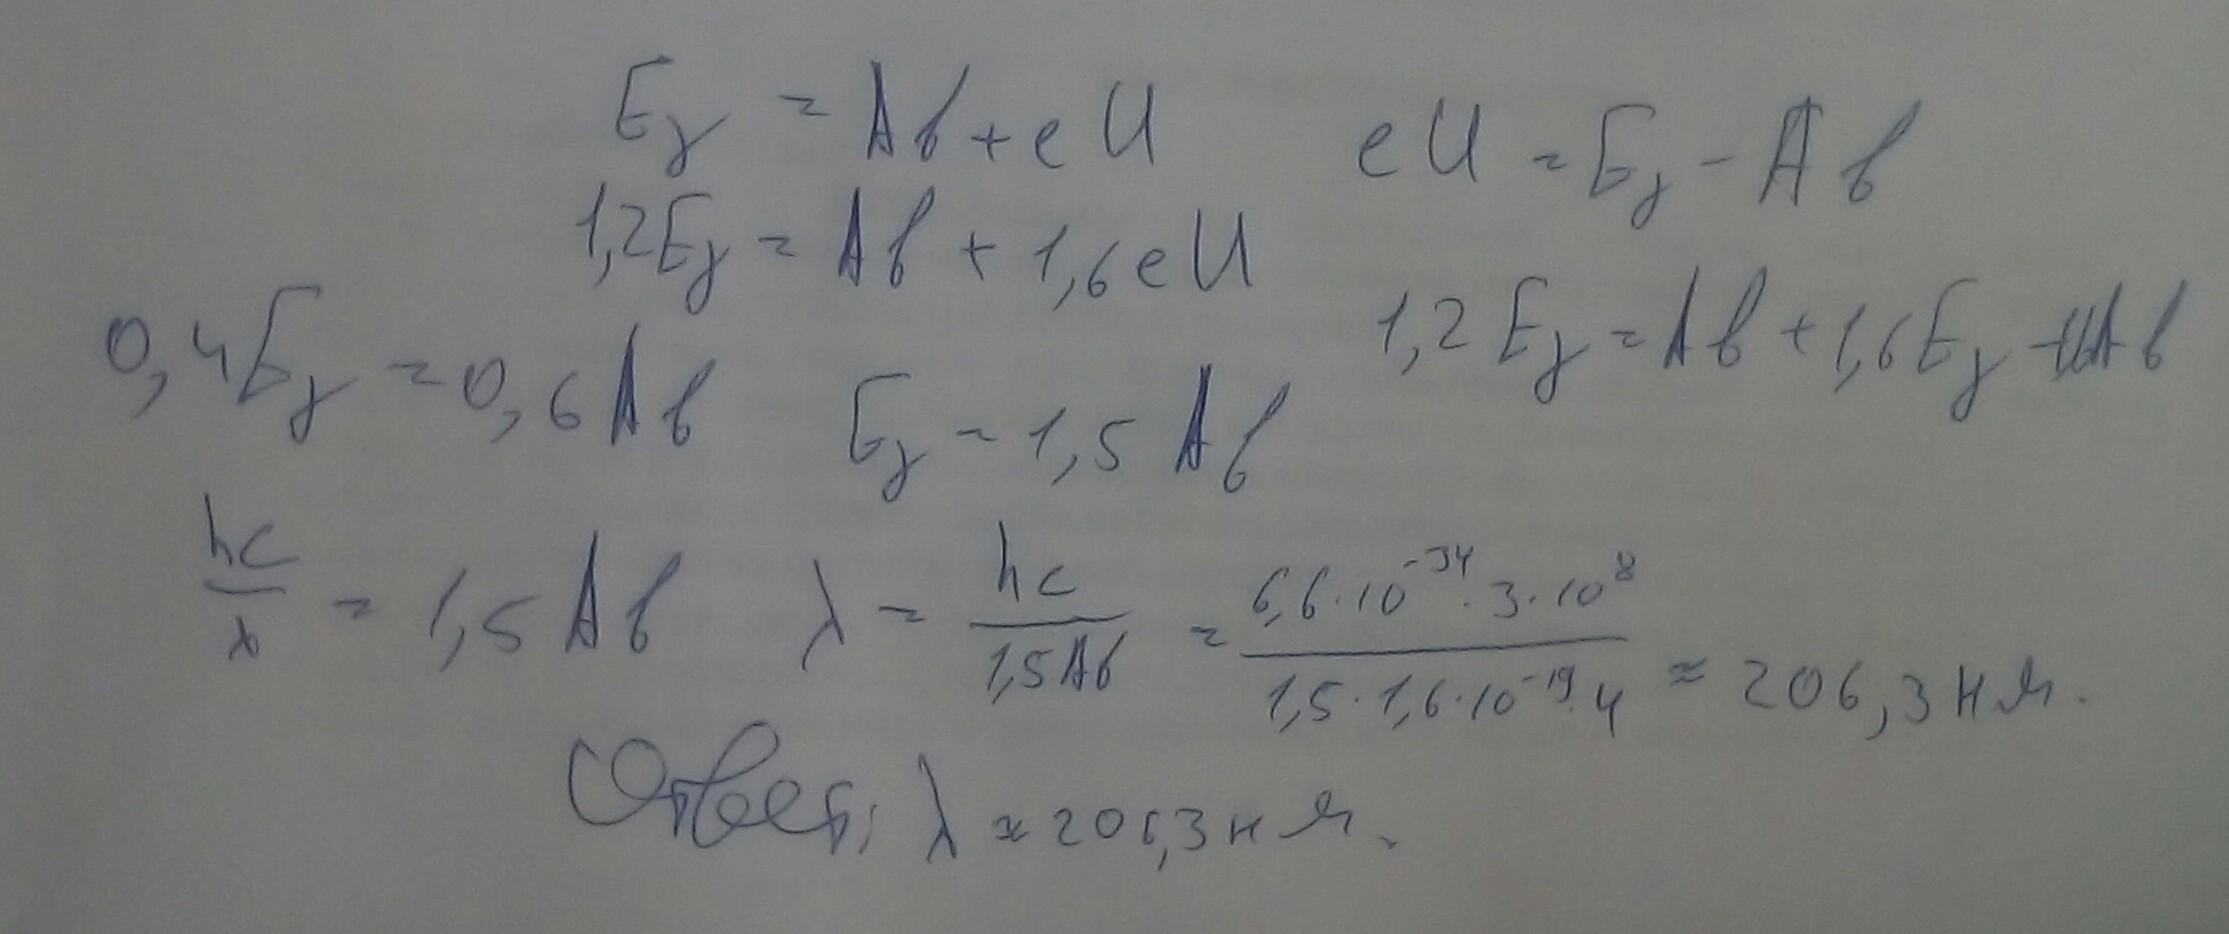 Eγ = Aв + eU
eU = Eγ - Aв
1,2Eγ = Aв + 1,6eU
1,2Eγ = Aв + 1,6Eγ - 1,6Aв
0,4Eγ = 0,6Aв
Eγ = 1,5Aв
hc/λ = 1,5Aв
λ = hc/1,5Aв = 6,6·10⁻³⁴·3·10⁸/1,5·1,6·10⁻¹⁹·4 ≈ 206,3 нм.
Ответ: λ ≈ 206,3 нм.